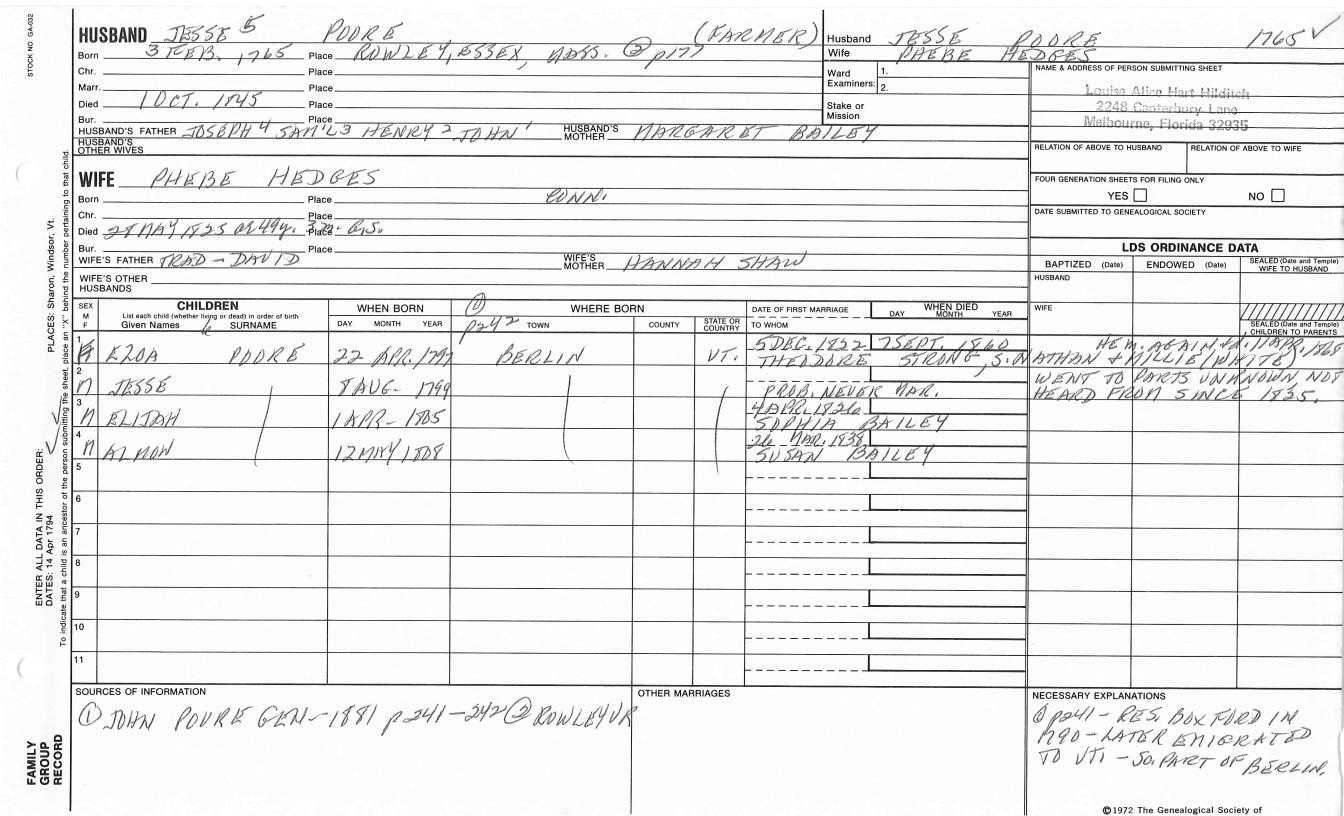 STOCK NO. GA-032
HUSBAND JESSE 5 POORE (FARMER)
Born 3 FEB. 1765 Place ROWLEY, ESSEX, MASS. ② p177
Chr. Place
Marr. Place
Died 1 OCT. 1845 Place
Bur. Place
HUSBAND'S FATHER JOSEPH 4 SAM'L 3 HENRY 2 JOHN 1 HUSBAND'S MOTHER MARGARET BAILEY
HUSBAND'S OTHER WIVES
Husband JESSE POORE 1765 ✓
Wife PHEBE HEDGES
Ward Examiners: 1.
2.
Stake or Mission
NAME & ADDRESS OF PERSON SUBMITTING SHEET
Louise Alice Hart Hilditch
2248 Canterbury Lane
Melbourne, Florida 32935
RELATION OF ABOVE TO HUSBAND RELATION OF ABOVE TO WIFE
FOUR GENERATION SHEETS FOR FILING ONLY
YES NO
DATE SUBMITTED TO GENEALOGICAL SOCIETY
WIFE PHEBE HEDGES
Born Place CONN.
Chr. Place
Died 28 MAY 1825 49y. 3m. G.S. Place
Bur. Place
WIFE'S FATHER TRAD - DAVID WIFE'S MOTHER HANNAH SHAW
WIFE'S OTHER HUSBANDS
LDS ORDINANCE DATA
BAPTIZED (Date) ENDOWED (Date) SEALED (Date and Temple) WIFE TO HUSBAND
HUSBAND
WIFE
SEALED (Date and Temple) CHILDREN TO PARENTS
SEX M F CHILDREN WHEN BORN ① WHERE BORN DATE OF FIRST MARRIAGE WHEN DIED
List each child (whether living or dead) in order of birth
Given Names 6 SURNAME DAY MONTH YEAR p242 TOWN COUNTY STATE OR COUNTRY TO WHOM DAY MONTH YEAR
1 F EZOA POORE 22 APR. 1797 BERLIN VT. 5 DEC. 1822 7 SEPT. 1860 HE M. AGAIN & D. 11 APR. 1865
THEODORE STRONG, S. NATHAN & MILLIE (WHITE)
2 M JESSE 8 AUG. 1799 PROB. NEVER MAR. WENT TO PARTS UNKNOWN, NOT
HEARD FROM SINCE 1835.
3 M ELIJAH 1 APR. 1805 4 APR. 1826 SOPHIA BAILEY
4 M ALMON 12 MAY 1808 26 MAR. 1838 SUSAN BAILEY
5
6
7
8
9
10
11
SOURCES OF INFORMATION
① JOHN POORE GEN-1881 p241-242 ② ROWLEY VR
OTHER MARRIAGES
NECESSARY EXPLANATIONS
① p241 - RES. BOXFORD IN
1790 - LATER EMIGRATED
TO VT. - SO. PART OF BERLIN.
©1972 The Genealogical Society of
FAMILY GROUP RECORD
ENTER ALL DATA IN THIS ORDER:
DATES: 14 Apr 1794
PLACES: Sharon, Windsor, Vt.
To indicate that a child is an ancestor of the person submitting the sheet, place an "X" behind the number pertaining to that child.